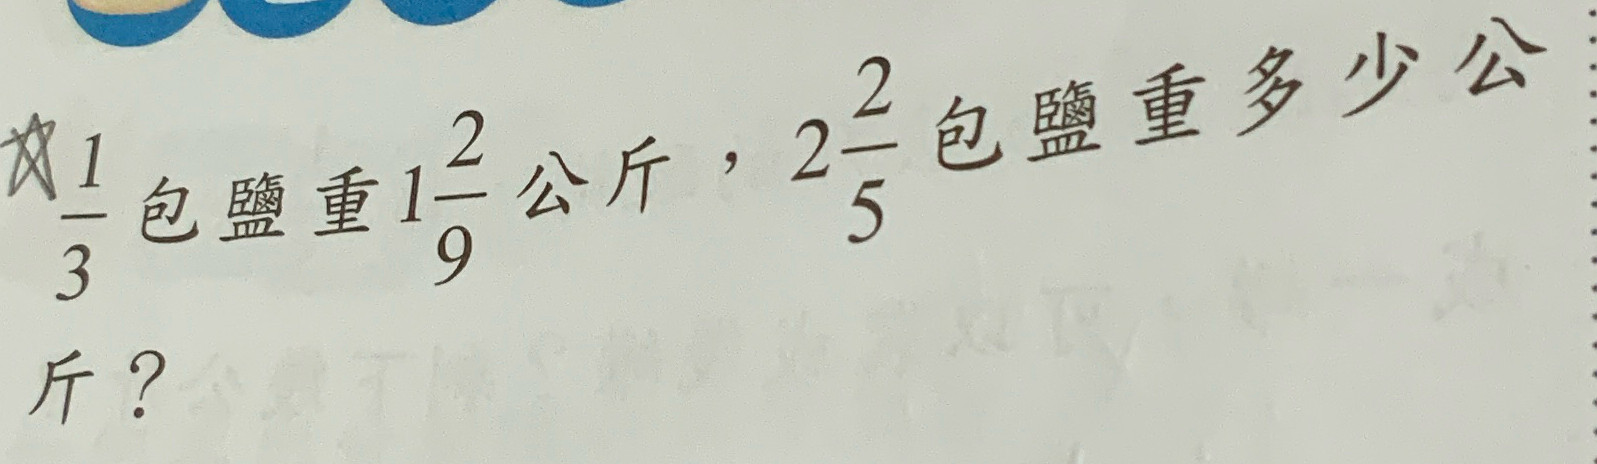 ☆1/3包鹽重1 2/9公斤，2 2/5包鹽重多少公
斤？